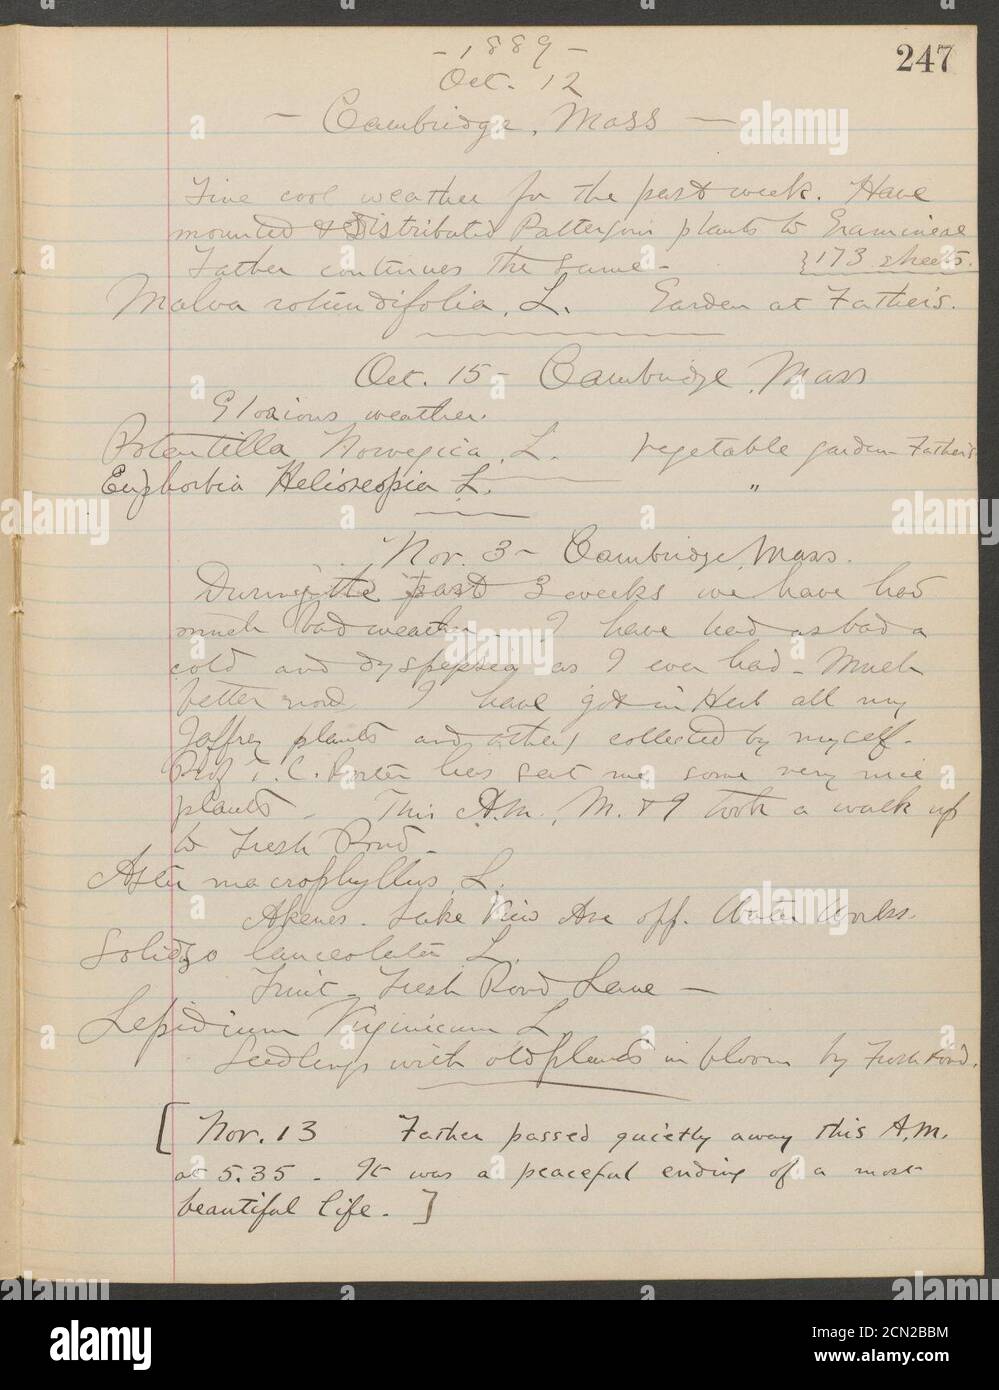 247
- 1889 -
Oct. 12
- Cambridge, Mass -
Fine cool weather for the past week. Have
mounted & distributed plants to Gramineae
Father continues the same - {173 sheets.
Malva rotundifolia, L. Garden at Father's.
Oct. 15 - Cambridge, Mass
Glorious weather.
Potentilla Norvegica, L. vegetable garden Father's
Euphorbia Helioscopia L. "
Nov. 3 - Cambridge, Mass.
During the past 3 weeks we have had
much bad weather. I have had as bad a
cold and dyspepsia as I ever had - Much
better now. I have got in Herb all my
Jaffrey plants and others collected by myself.
Prof T. C. Porter has sent me some very nice
plants - This A.M., M. & I took a walk up
to Fresh Pond -
Aster macrophyllus, L.
Akenes. Lake View Ave off. Water Works.
Solidago lanceolata L.
Fruit - Fresh Pond Lane -
Lepidium Virginicum L.
Seedlings with old plants in bloom by Fresh Pond.
[ Nov. 13 Father passed quietly away this A.M.
at 5.35 - It was a peaceful ending of a most
beautiful life. ]
alamy
Image ID: 2CN2BBM
www.alamy.com